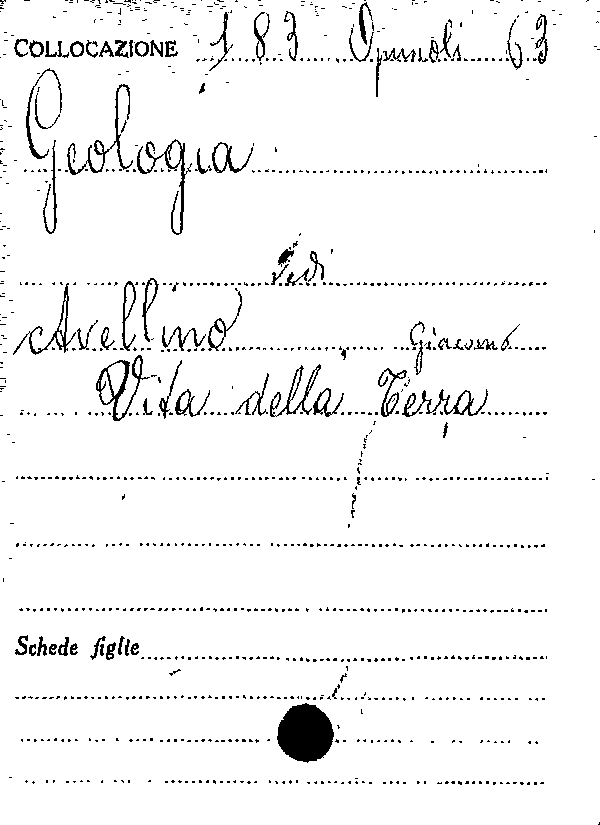 COLLOCAZIONE 183 Opuscoli 63
Geologia
Vedi
Avellino, Giacomo
Vita della Terra
Schede figlie